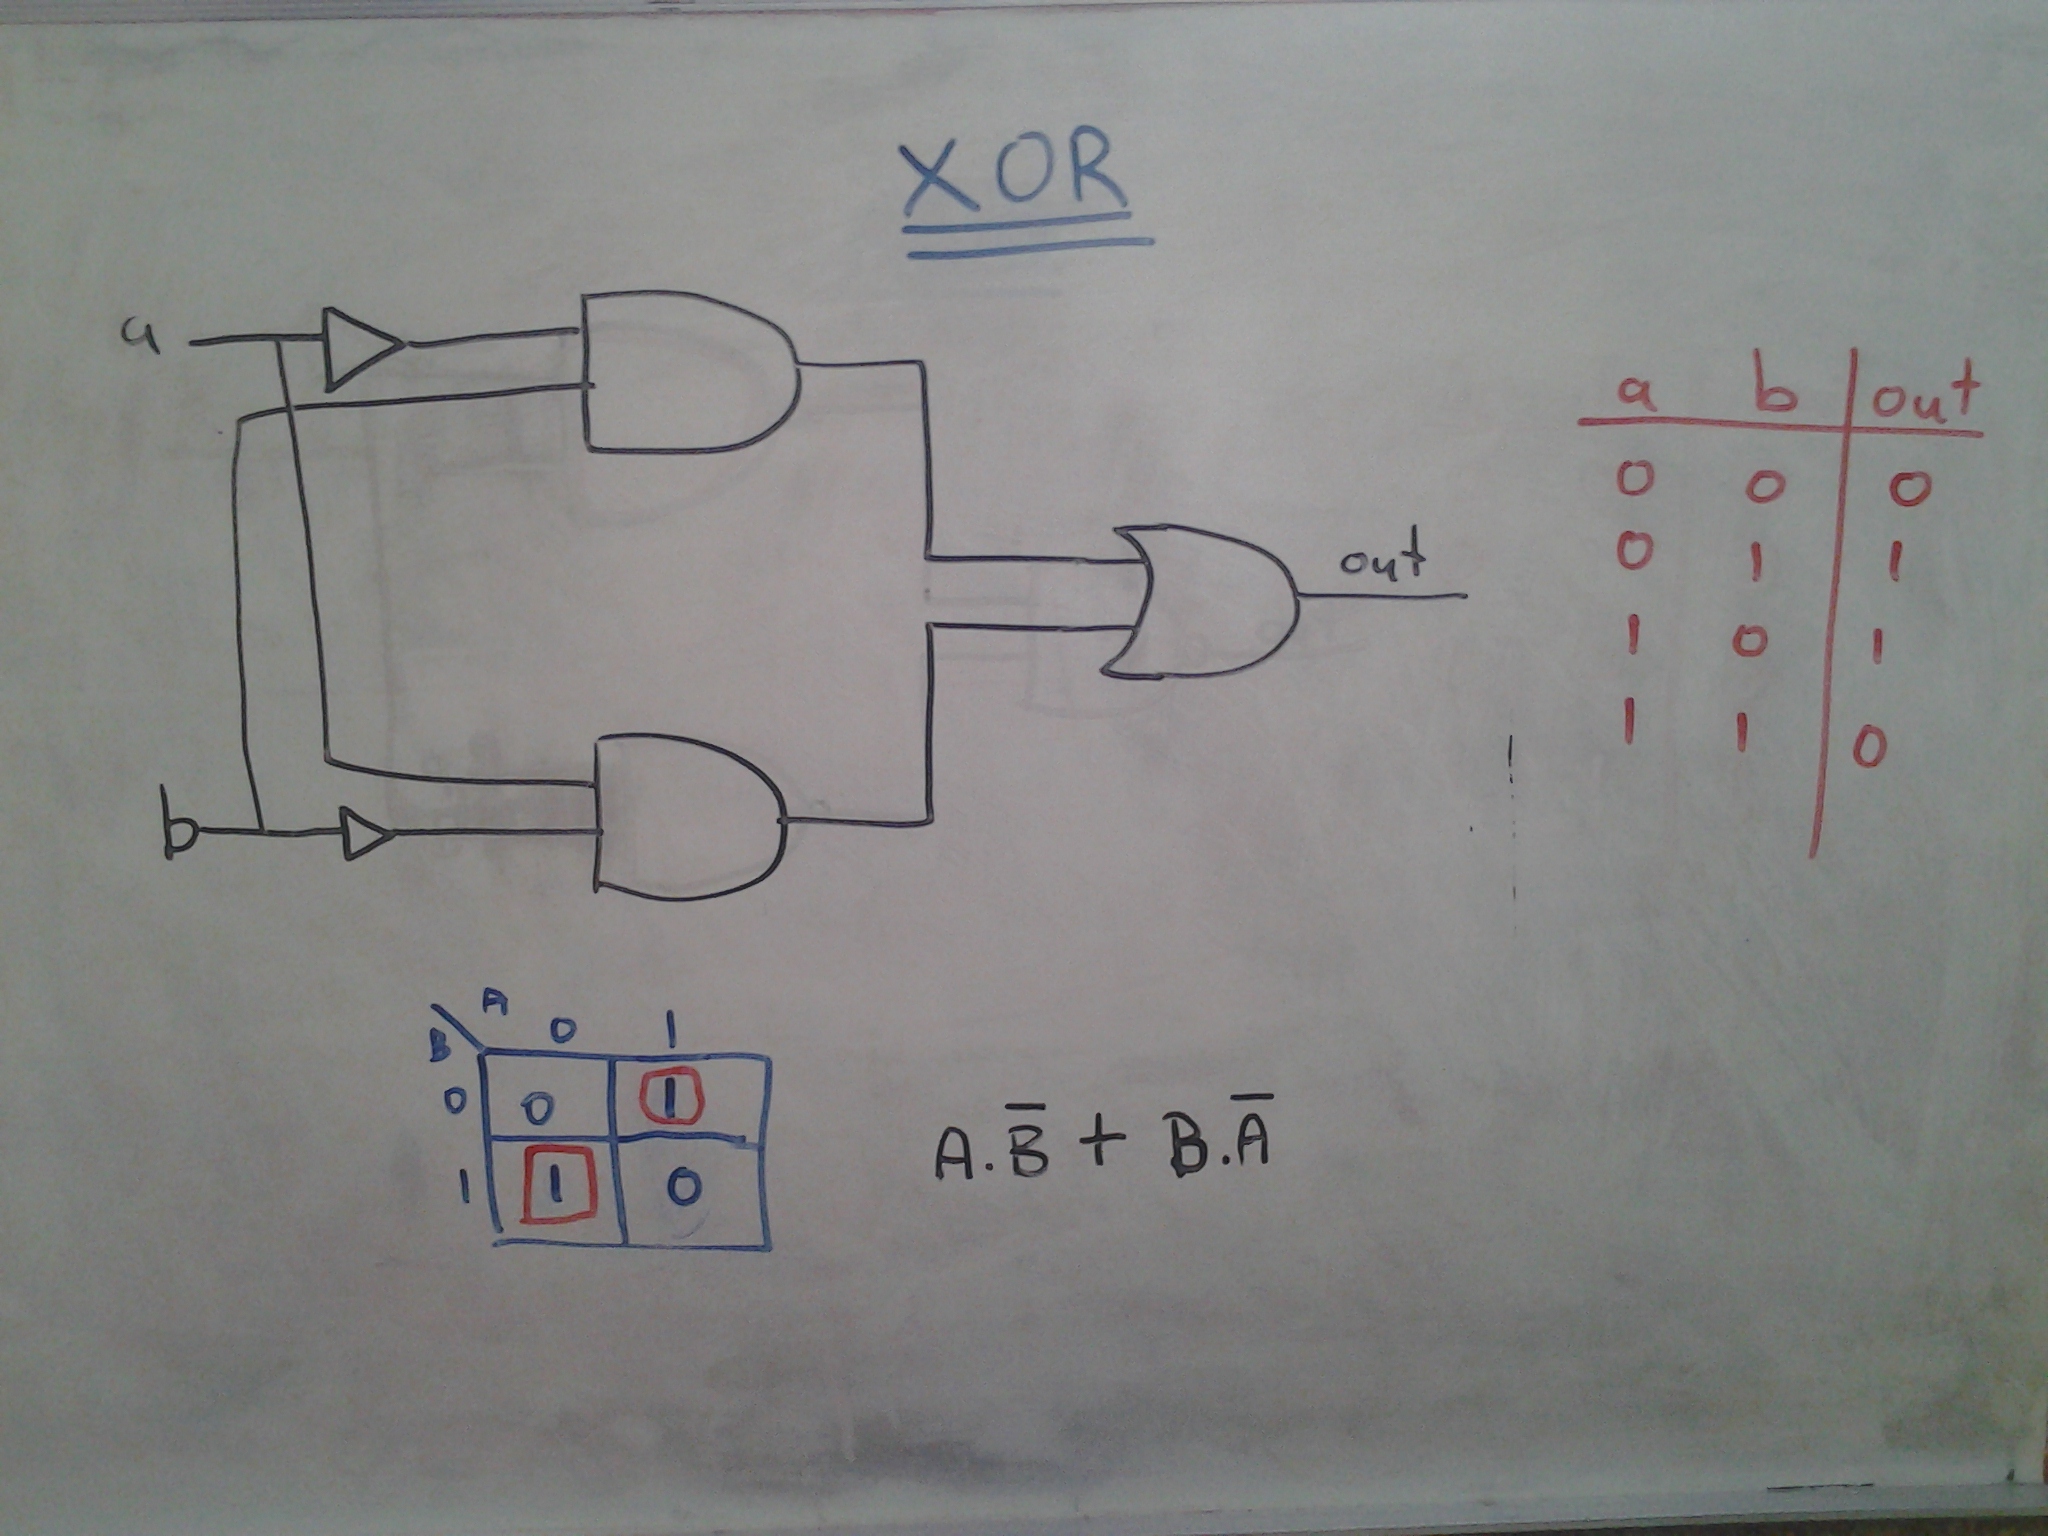 XOR
a
b
out
a b out
0 0 0
0 1 1
1 0 1
1 1 0
A
B
0 1
0 0 1
1 1 0
A.B̅ + B.A̅